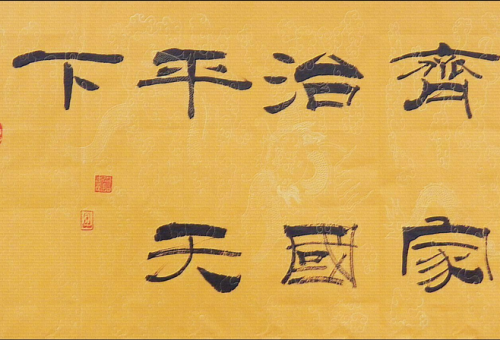 齊家
治國
平天
下